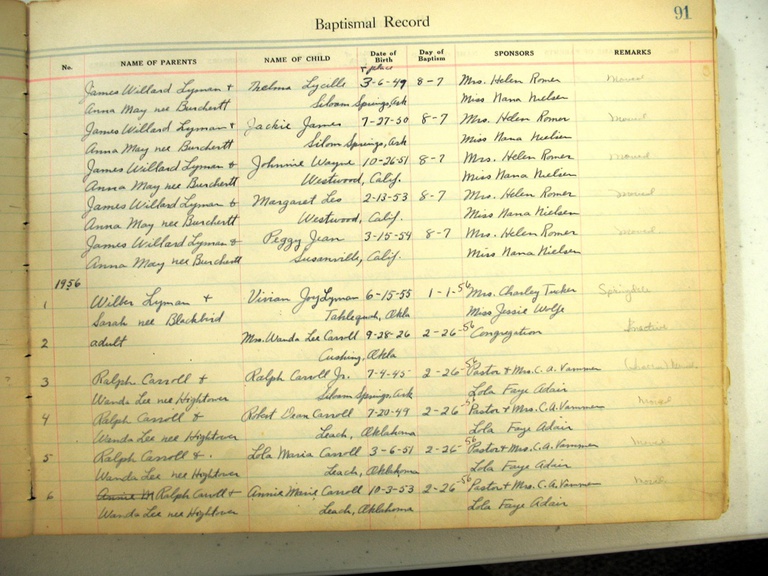 91
Baptismal Record
No. NAME OF PARENTS NAME OF CHILD Date of Birth Day of Baptism SPONSORS REMARKS
+ place
James Willard Lyman + Thelma Lucille 3-6-49 8-7 Mrs. Helen Romer Moved
Anna May nee Burchett Siloam Springs, Ark Miss Nana Nielsen
James Willard Lyman + Jackie James 7-27-50 8-7 Mrs. Helen Romer Moved
Anna May nee Burchett Silom Springs, Ark Miss Nana Nielsen
James Willard Lyman + Johnnie Wayne 10-26-51 8-7 Mrs. Helen Romer Moved
Anna May nee Burchett Westwood, Calif. Miss Nana Nielsen
James Willard Lyman + Margaret Leo 2-13-53 8-7 Mrs. Helen Romer Moved
Anna May nee Burchett Westwood, Calif. Miss Nana Nielsen
James Willard Lyman + Peggy Jean 3-15-54 8-7 Mrs. Helen Romer Moved
Anna May nee Burchett Susanville, Calif. Miss Nana Nielsen
1956
1 Wilber Lyman + Vivian Joy Lyman 6-15-55 1-1-56 Mrs. Charley Tucker
Sarah nee Blackbird Tahlequah, Okla Miss Jessie Wolfe
2 adult Mrs. Wanda Lee Carroll 9-28-26 2-26-56 Congregation Inactive
Cushing, Okla
3 Ralph Carroll + Ralph Carroll Jr. 7-4-45 2-26-56 Pastor + Mrs. C. A. Vammen
Wanda Lee nee Hightower Siloam Springs, Ark Lola Faye Adair
4 Ralph Carroll + Robert Dean Carroll 7-20-49 2-26-56 Pastor + Mrs. C. A. Vammen Moved
Wanda Lee nee Hightower Leach, Oklahoma Lola Faye Adair
5 Ralph Carroll + Lola Maria Carroll 3-6-51 2-26-56 Pastor + Mrs. C. A. Vammen Moved
Wanda Lee nee Hightover Leach, Oklahoma Lola Faye Adair
6 Annie M Ralph Carroll + Annie Marie Carroll 10-3-53 2-26-56 Pastor + Mrs. C. A. Vammen Moved
Wanda Lee nee Hightover Leach, Oklahoma Lola Faye Adair